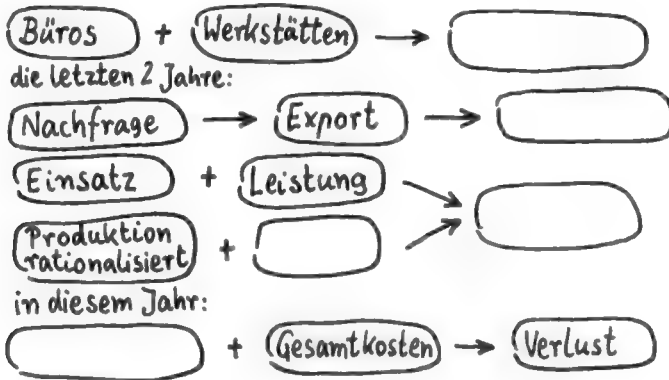 Büros + Werkstätten →
die letzten 2 Jahre:
Nachfrage → Export →
Einsatz + Leistung
Produktion
rationalisiert +
in diesem Jahr:
+ Gesamtkosten → Verlust